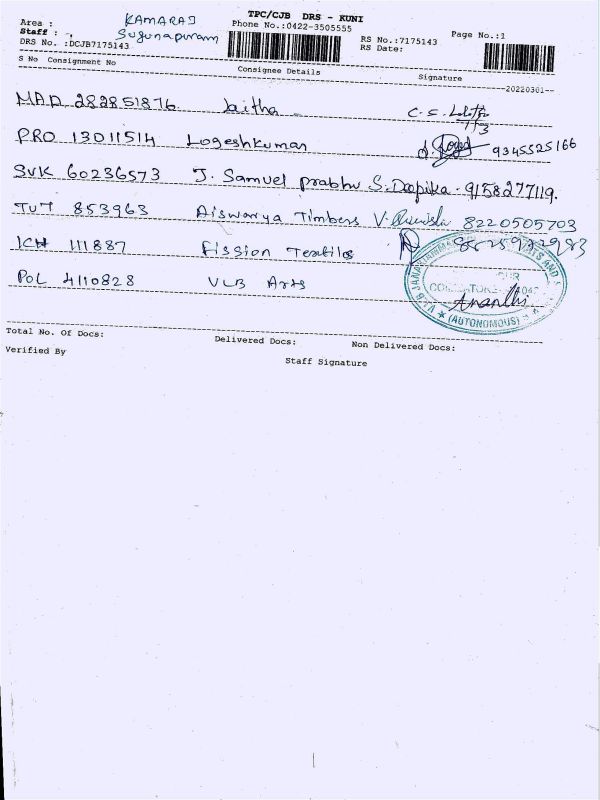 TPC/CJB DRS - KUNI
Area : KAMARAJ
Phone No.:0422-3505555
Staff : Sugunapuram
RS No.:7175143
Page No.:1
DRS No. :DCJB7175143
RS Date:
S No Consignment No
Consignee Details
Signature
20220301
MAD 282851876 Jaitha
PRO 13011514 Logeshkumar 9345525166
SVK 60236573 J. Samuel prabhu S. Deepika - 9158277119.
TUT 853963 Aiswarya Timbers 8220505703
ICH 111887 Fission Textiles
POL 4110828 VLB Arts Ananthi
(AUTONOMOUS)
Total No. Of Docs:
Delivered Docs:
Non Delivered Docs:
Verified By
Staff Signature